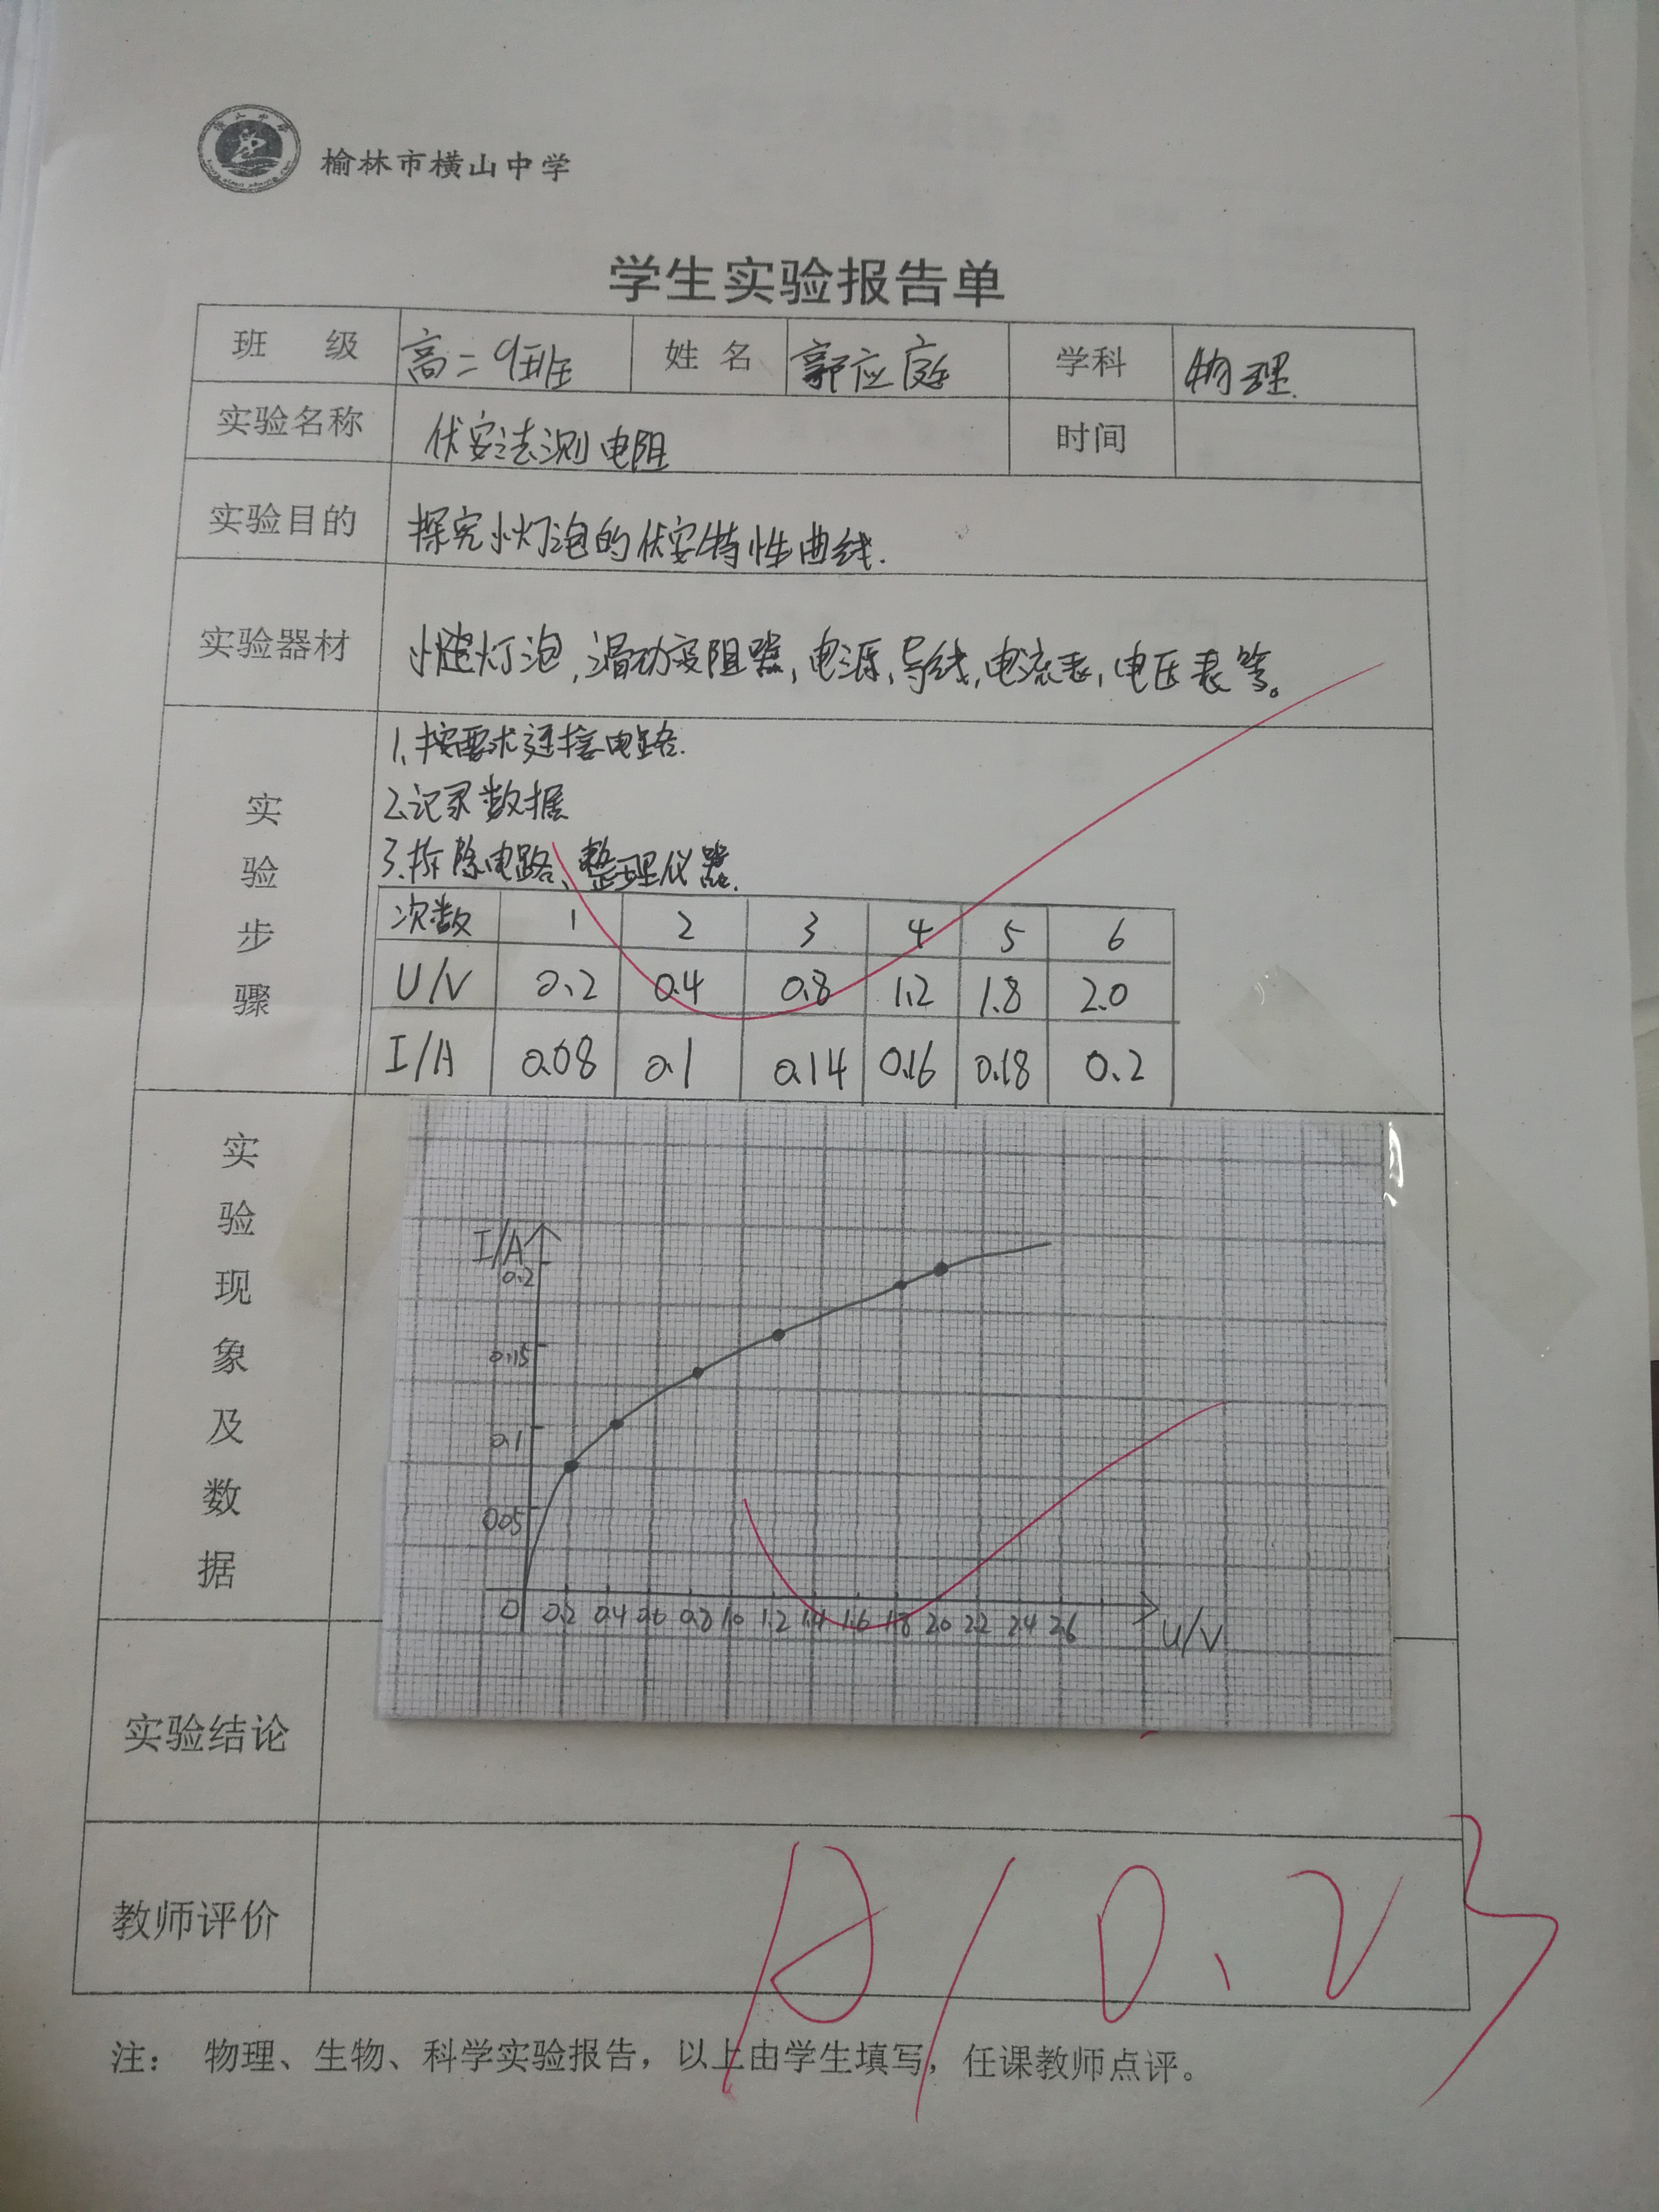 榆林市横山中学
学生实验报告单
班 级 高二9班 姓 名 郭应庭 学科 物理.
实验名称 伏安法测电阻 时间
实验目的 探究小灯泡的伏安特性曲线.
实验器材 小灯泡,滑动变阻器,电源,导线,电流表,电压表等。
实验步骤
1.按要求连接电路.
2.记录数据
3.拆除电路、整理仪器.
次数 1 2 3 4 5 6
U/V 0.2 0.4 0.8 1.2 1.8 2.0
I/A 0.08 0.1 0.14 0.16 0.18 0.2
实验现象及数据
I/A
0.2
0.15
0.1
0.05
0 0.2 0.4 0.6 0.8 1.0 1.2 1.4 1.6 1.8 2.0 2.2 2.4 2.6 U/V
实验结论
教师评价 A/10.23
注: 物理、生物、科学实验报告,以上由学生填写,任课教师点评。